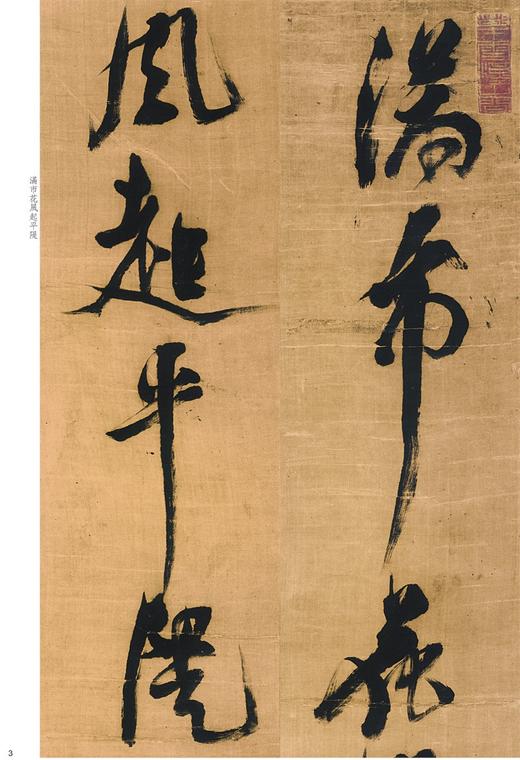 滿市花
風起平隄
滿市花風起平隄
3